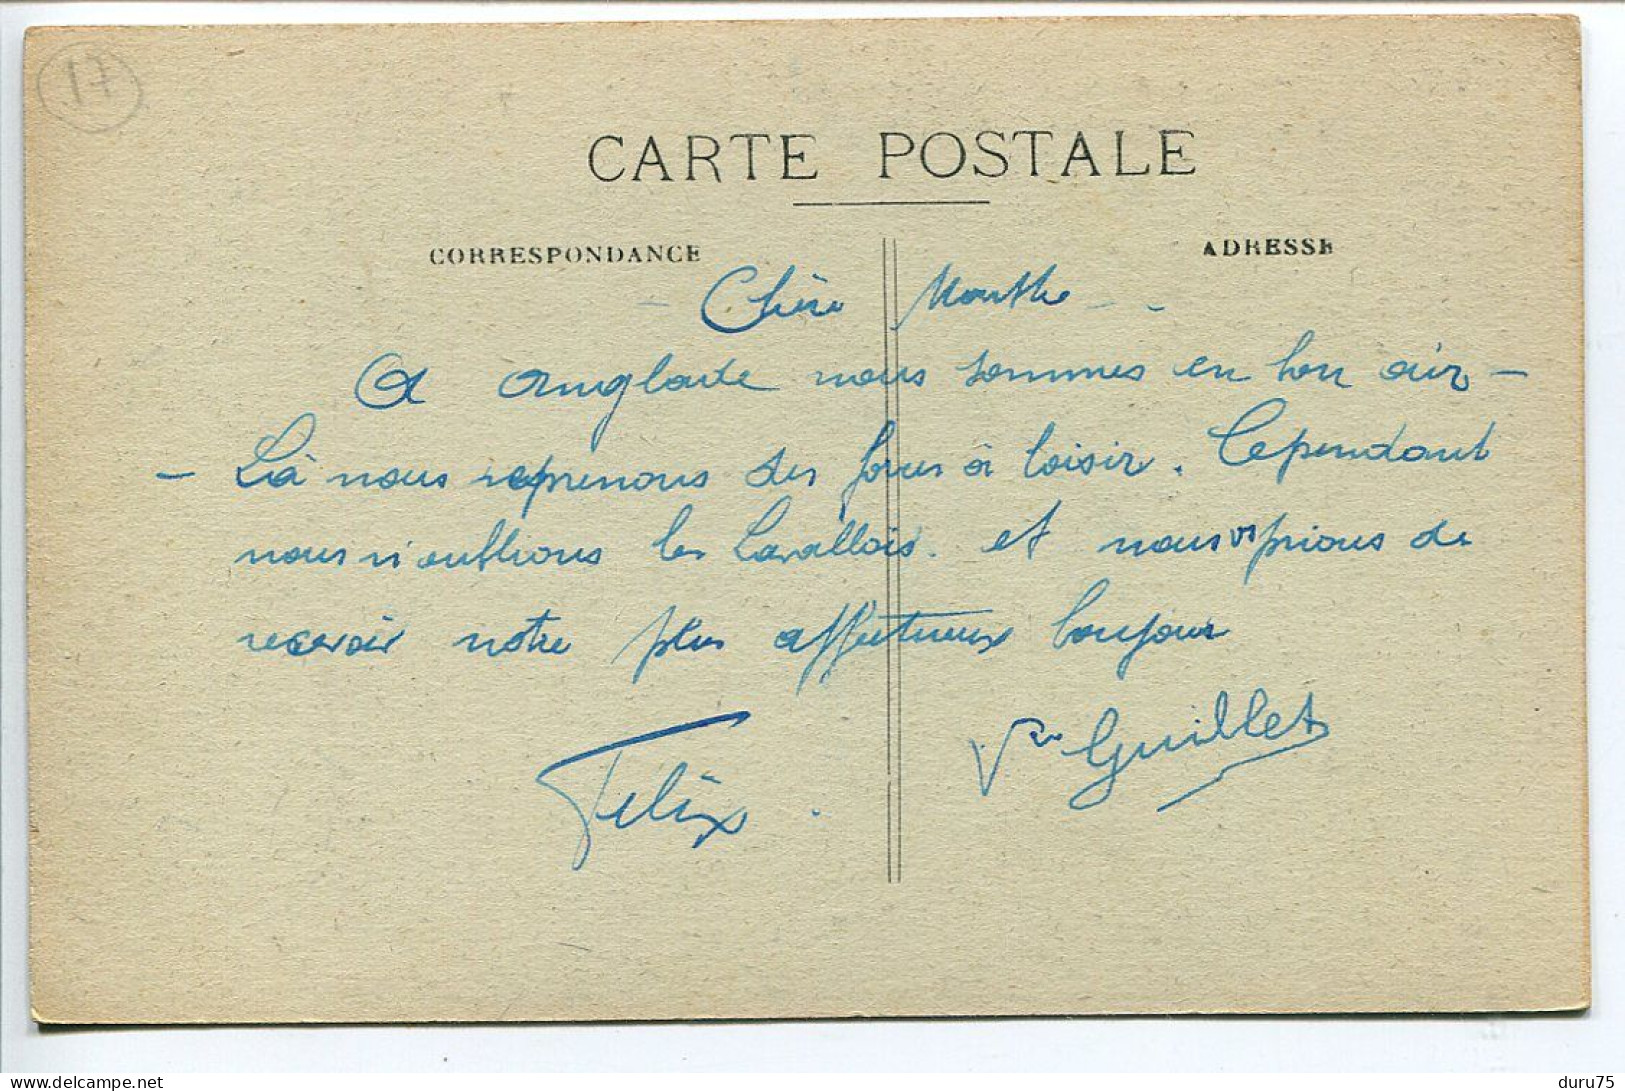 17
CARTE POSTALE
CORRESPONDANCE
ADRESSE
- Chère Marthe - -
A anglade nous sommes en bon air -
- Là nous reprenons des forces à loisir. Cependant
nous n'oublions les Lavallois. et nous vs prions de
recevoir notre plus affectueux bonjour
Vve Guillet
Felix.
delcampe.net
duru75